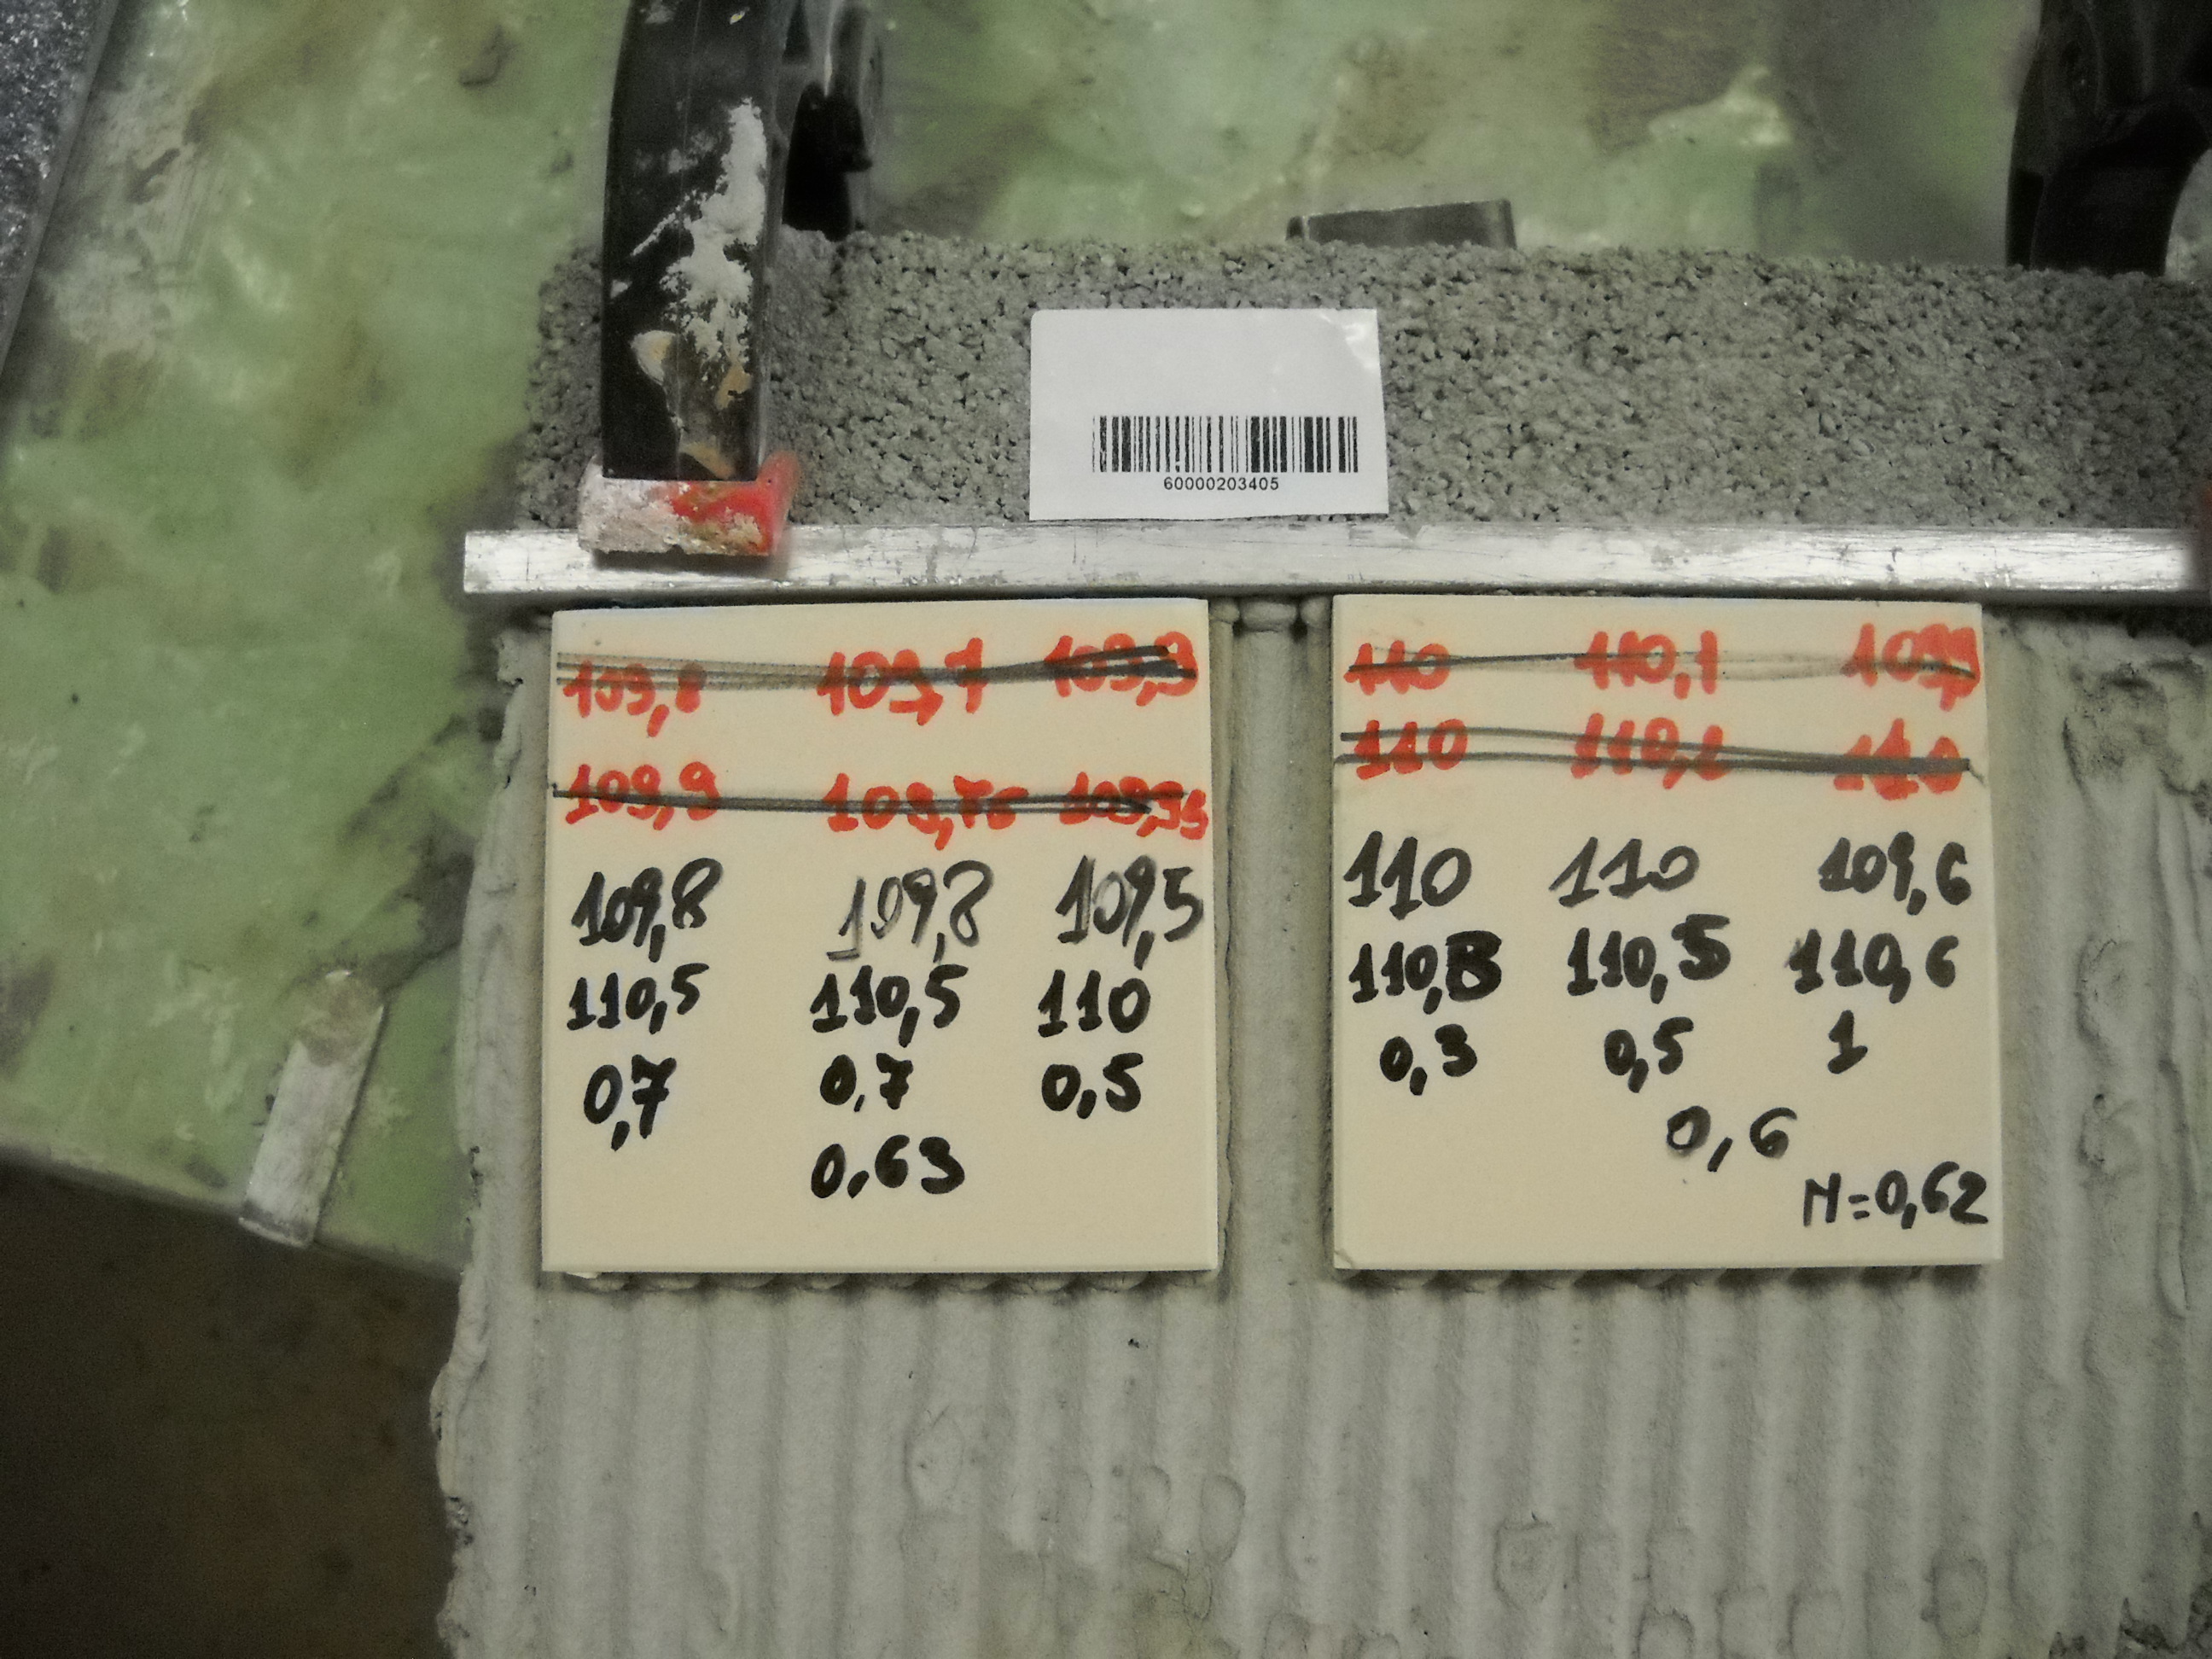 60000203405
109,8 109,7 109,9
109,9 109,75 109,95
109,8 109,8 109,5
110,5 110,5 110
0,7 0,7 0,5
0,63
110 110,1 109,9
110 110,2 110
110 110 109,6
110,3 110,5 110,6
0,3 0,5 1
0,6
M=0,62